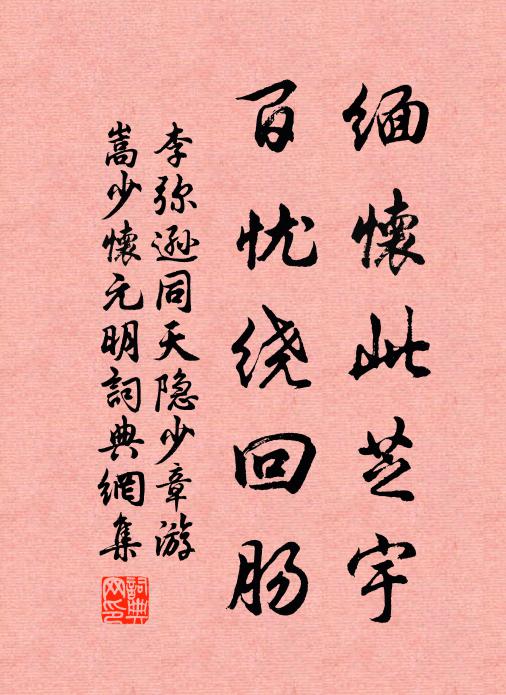 缅懷此芝宇
百忧绕回肠
李弥遜同天隐少章游
嵩少懷元明詞典網集
詞典網印